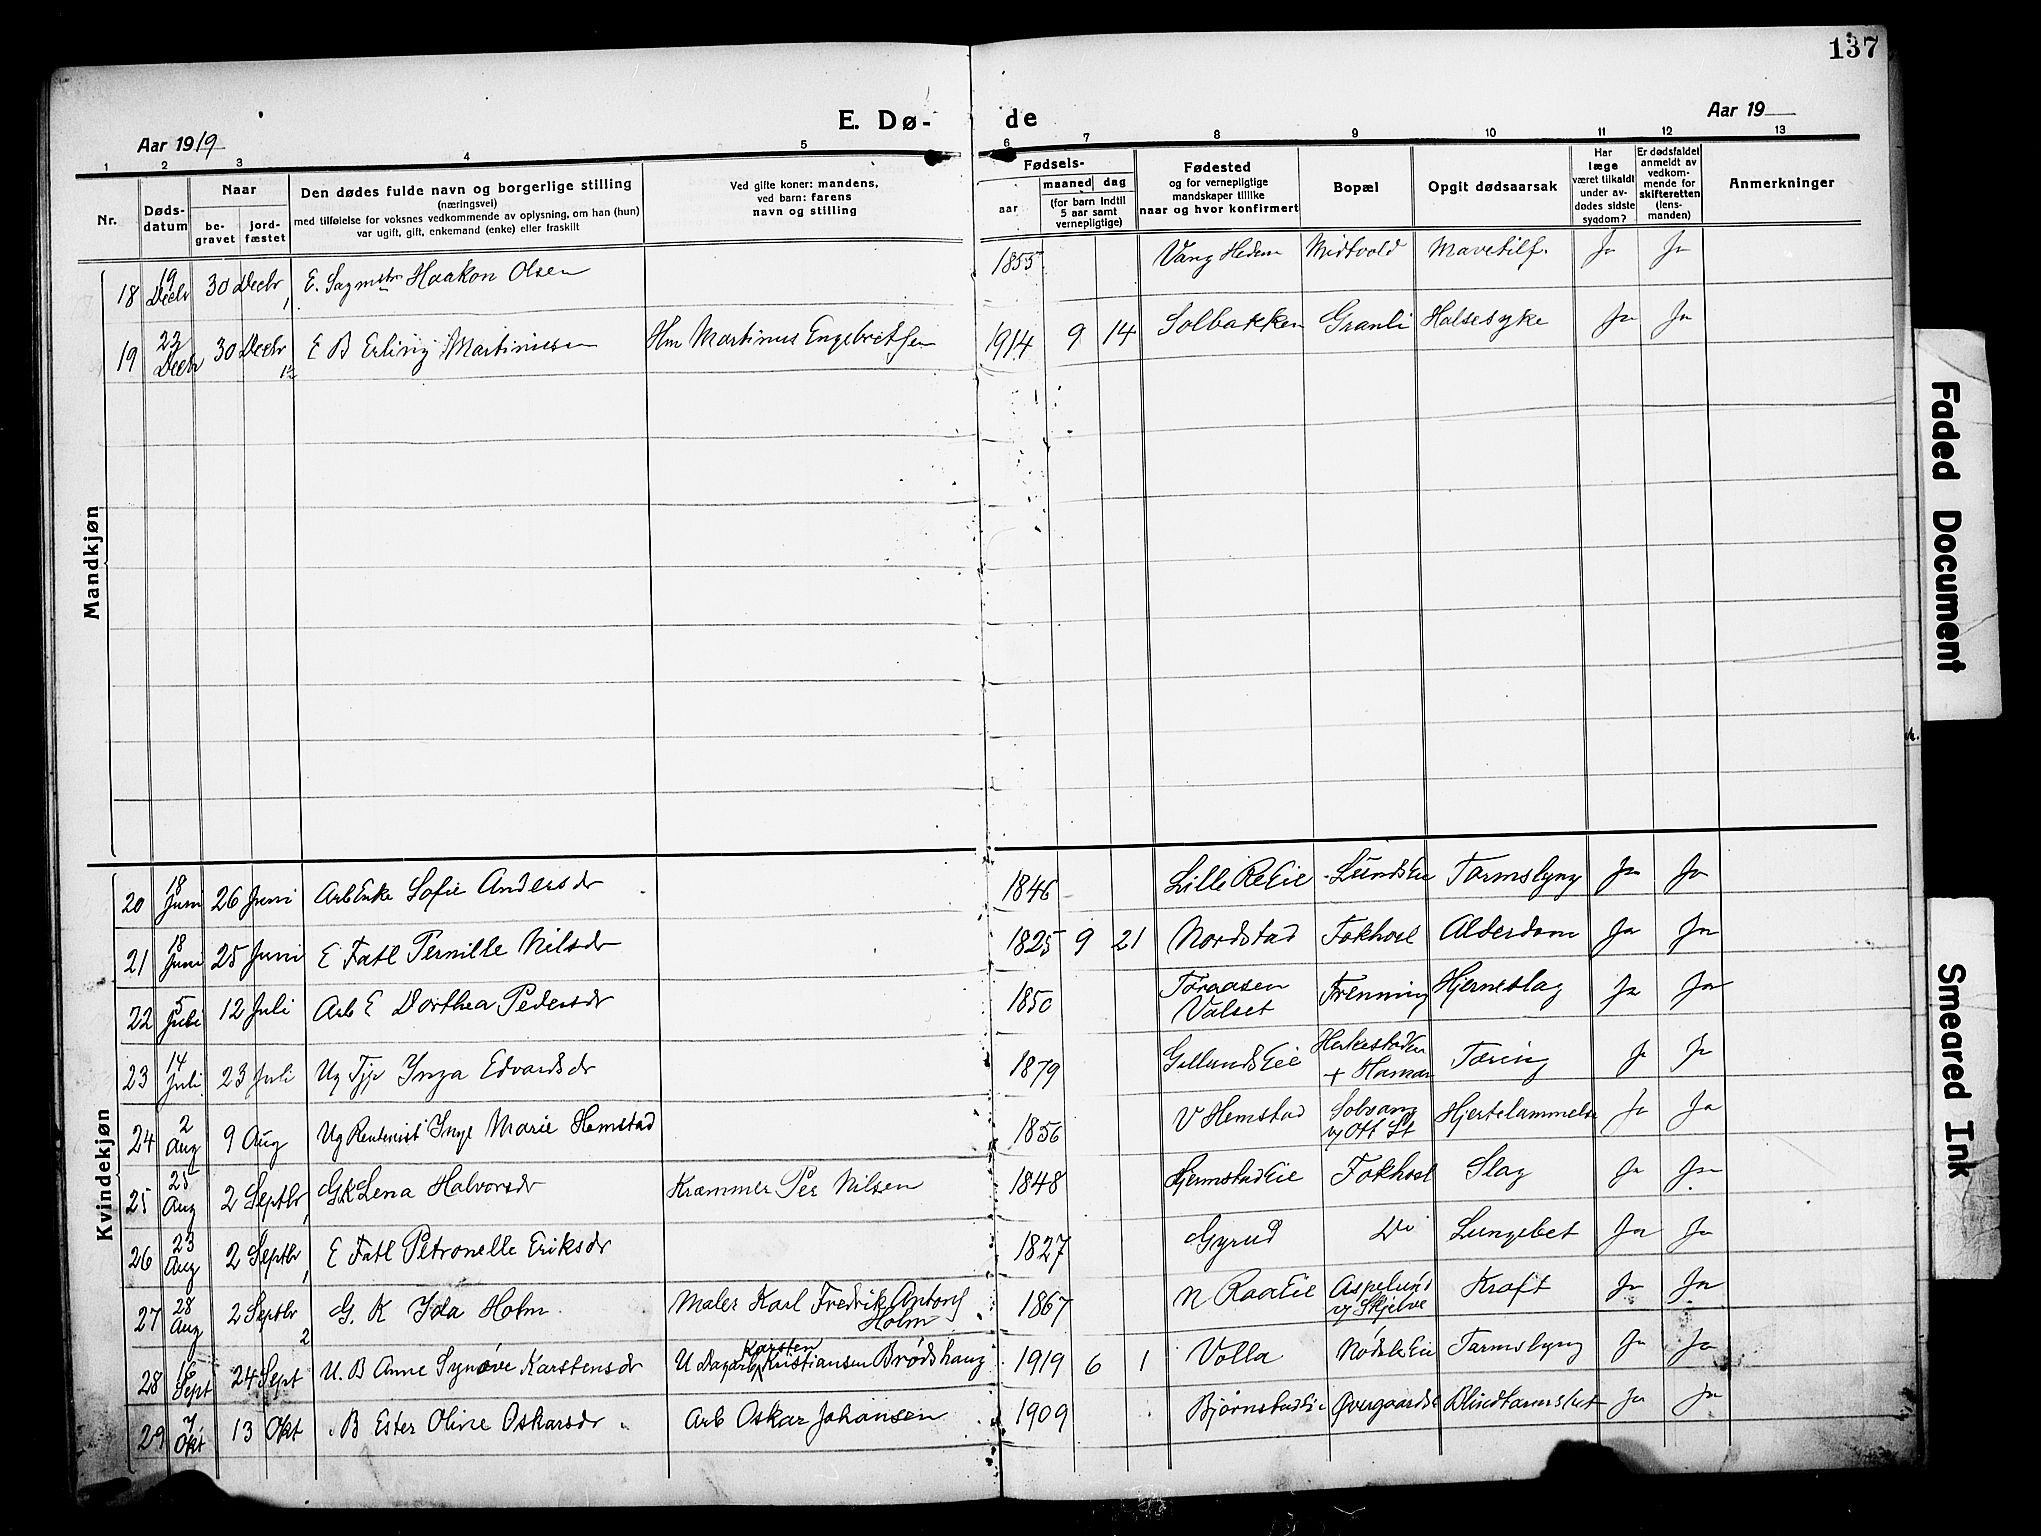 137
E. Dø-
de
Aar 1919
Aar 19
1 2 3 4 5 6 7 8 9 10 11 12 13
Nr.
Døds-
datum
Naar
be-
gravet
jord-
fæstet
Den dødes fulde navn og borgerlige stilling
(næringsvei)
med tilføielse for voksnes vedkommende av oplysning, om han (hun)
var ugift, gift, enkemand (enke) eller fraskilt
Ved gifte koner: mandens,
ved barn: farens
navn og stilling
Fødsels-
aar
maaned dag
(for barn indtil
5 aar samt
vernepligtige)
Fødested
og for vernepligtige
mandskaper tillike
naar og hvor konfirmert
Bopæl
Opgit dødsaarsak
Har
læge
været tilkaldt
under av-
dødes sidste
sygdom?
Er dødsfaldet
anmeldt av
vedkom-
mende for
skifteretten
(lens-
manden)
Anmerkninger
Mandkjøn
18 19 Decbr 30 Decbr E. Sagmstr Haakon Olsen 1855 Vang Hedem Midtvold Mavetilf. Ja Ja
19 22 Decbr 30 Decbr E B Erling Martiniussen Hm Martinus Engebretsen 1914 9 14 Solbakken Granli Halsesyke Ja Ja
Kvindekjøn
20 18 Juni 26 Juni Arb Enke Sofie Andersdr 1846 Lille Re Eie Lunds Eie Tarmslyng Ja Ja
21 18 Juni 25 Juni E Fatl Pernille Nilsdr 1825 9 21 Nordstad Fokhol Alderdom Ja Ja
22 5 Juli 12 Juli Arb E Dorthea Pedersdr 1850 Toraasen Valset Frenning Hjerneslag Ja Ja
23 14 Juli 23 Juli Ug Tjp Inga Edvardsdr 1879 Gillunds Eie Herkestad Eie + Hamar Tæring Ja Ja
24 2 Aug 9 Aug Ug Rentenist Inge Marie Hemstad 1856 V Hemstad Solvang v/ Ott St Hjertelammelse Ja Ja
25 25 Aug 2 Septbr G K Lena Halvorsdr Kræmmer Per Nilsen 1848 Hjermstad Eie Fokhol Slag Ja Ja
26 23 Aug 2 Septbr E Fatl Petronelle Eriksdr 1827 Gyrud Do Lungebet Ja Ja
27 28 Aug 2 Septbr G. K Ida Holm Maler Karl Fredrik Antons Holm 1867 N Raa Eie Aspelund v/ Skjelve Kræft Ja Ja
28 16 Sept 24 Sept U. B Anne Synøve Karstensdr U Dagarb Karsten Kristiansen Brødshaug 1919 6 1 Volla Nødsle Eie Tarmslyng Ja Ja
29 7 Okt 13 Okt B Ester Oline Oskarsdr Arb Oskar Johansen 1909 Bjørnstad Eie Øvergaards E Blindtarmsbet Ja Ja
Faded Document
Smeared Ink